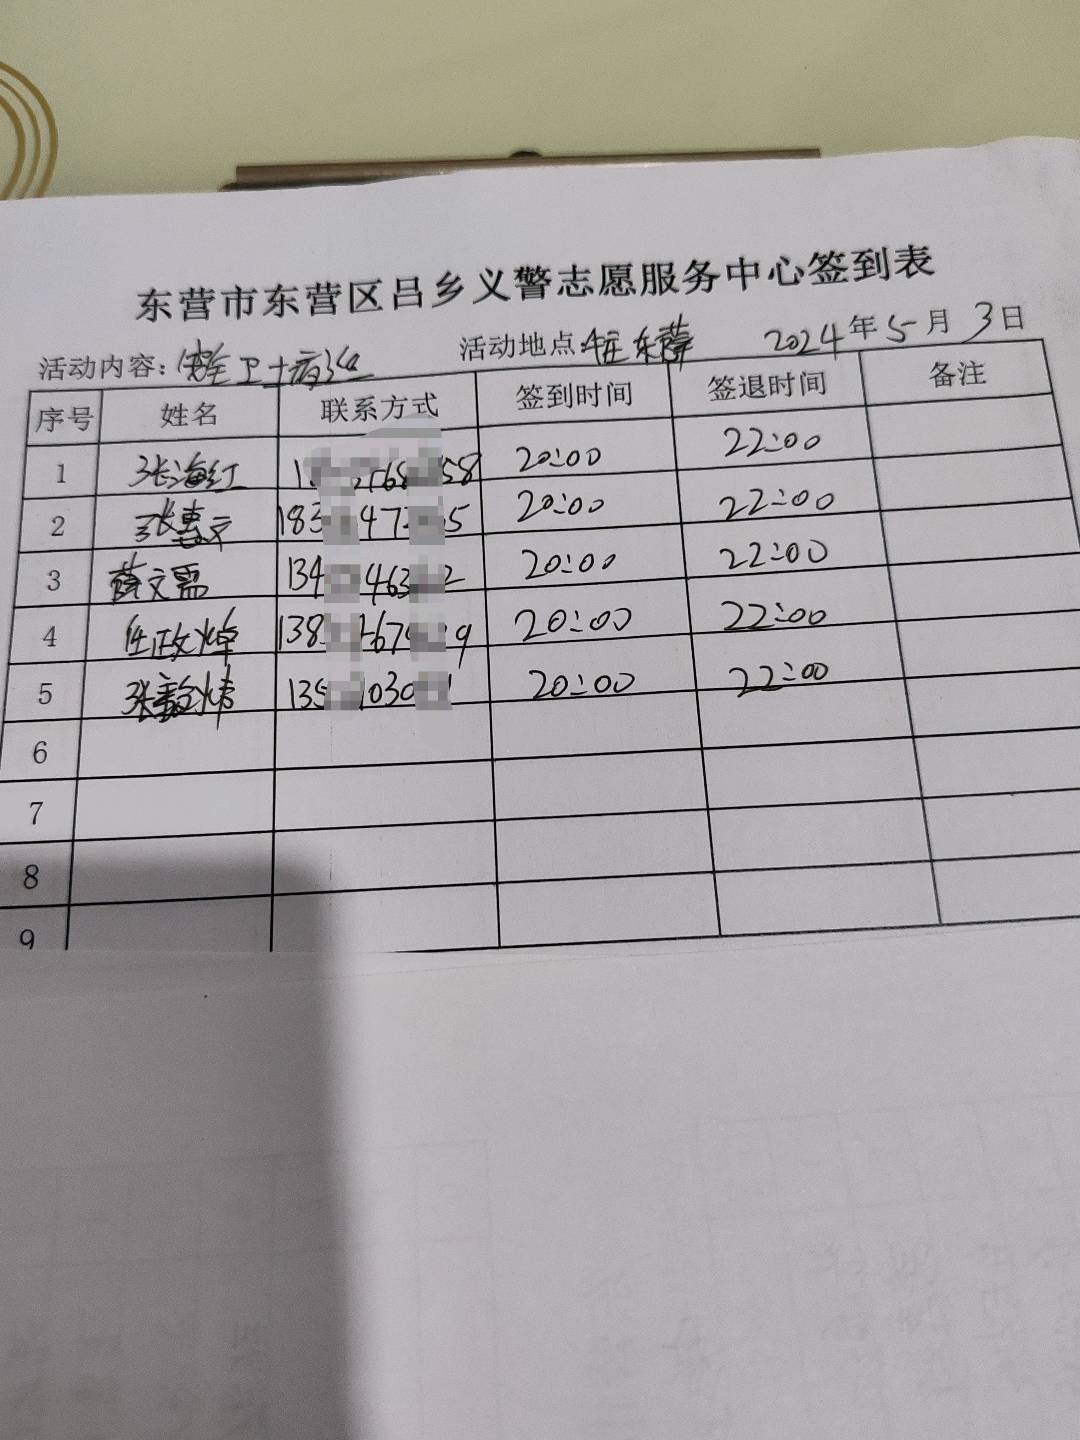 东营市东营区吕乡义警志愿服务中心签到表
活动内容: 安全卫士 活动地点: 2024年5月3日
序号 姓名 联系方式 签到时间 签退时间 备注
1 张海红 58 20:00 22:00
2 张惠文 183 47 5 20:00 22:00
3 薛文 134 463 2 20:00 22:00
4 任政 138 67 9 20:00 22:00
5 张 135 1030 20:00 22:00
6
7
8
9